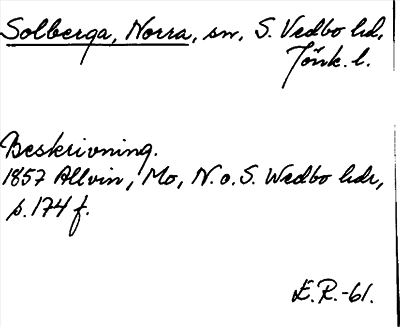 Solberga, Norra, sn, S. Vedbo hd,
Jönk. l.
Beskrivning.
1857 Allvin, Mo, N. o. S. Wedbo hdr,
s. 174 f.
E.R.-61.